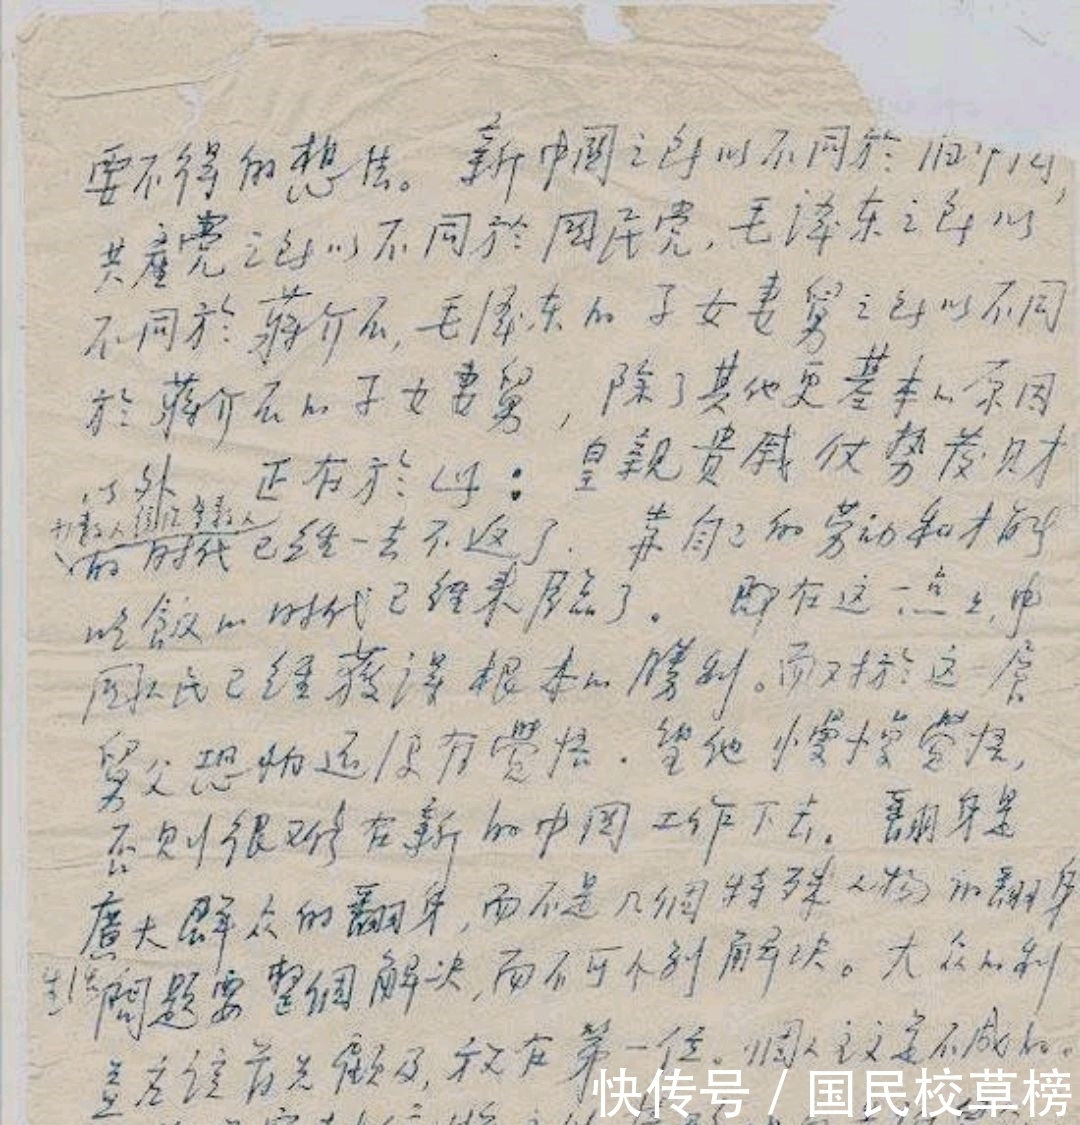 要不得的想法。新中國之所以不同於旧中国，
共產党之所以不同於國民党，毛泽东之所以
不同於蒋介石，毛泽东的子女妻舅之所以不同
於蒋介石的子女妻舅，除了其他更基本的原因
以外 正在於此：皇親貴戚仗势發財
少数人统治多数人
的时代已經一去不返了．靠自己的劳动和才能
吃飯的时代已經来臨了。即在这一点上，中
国人民已經獲得根本的勝利。而对於这一层
舅父恐怕还没有覺悟．望他慢慢覺悟，
否则很难在新的中國工作下去。翻身是
廣大群众的翻身，而不是几個特殊人物的翻身
生活問題要整個解决，而不可个别解决。大众的利
益应该首先顧及，放在第一位。個人主义是不成的。
快传号 / 国民校草榜